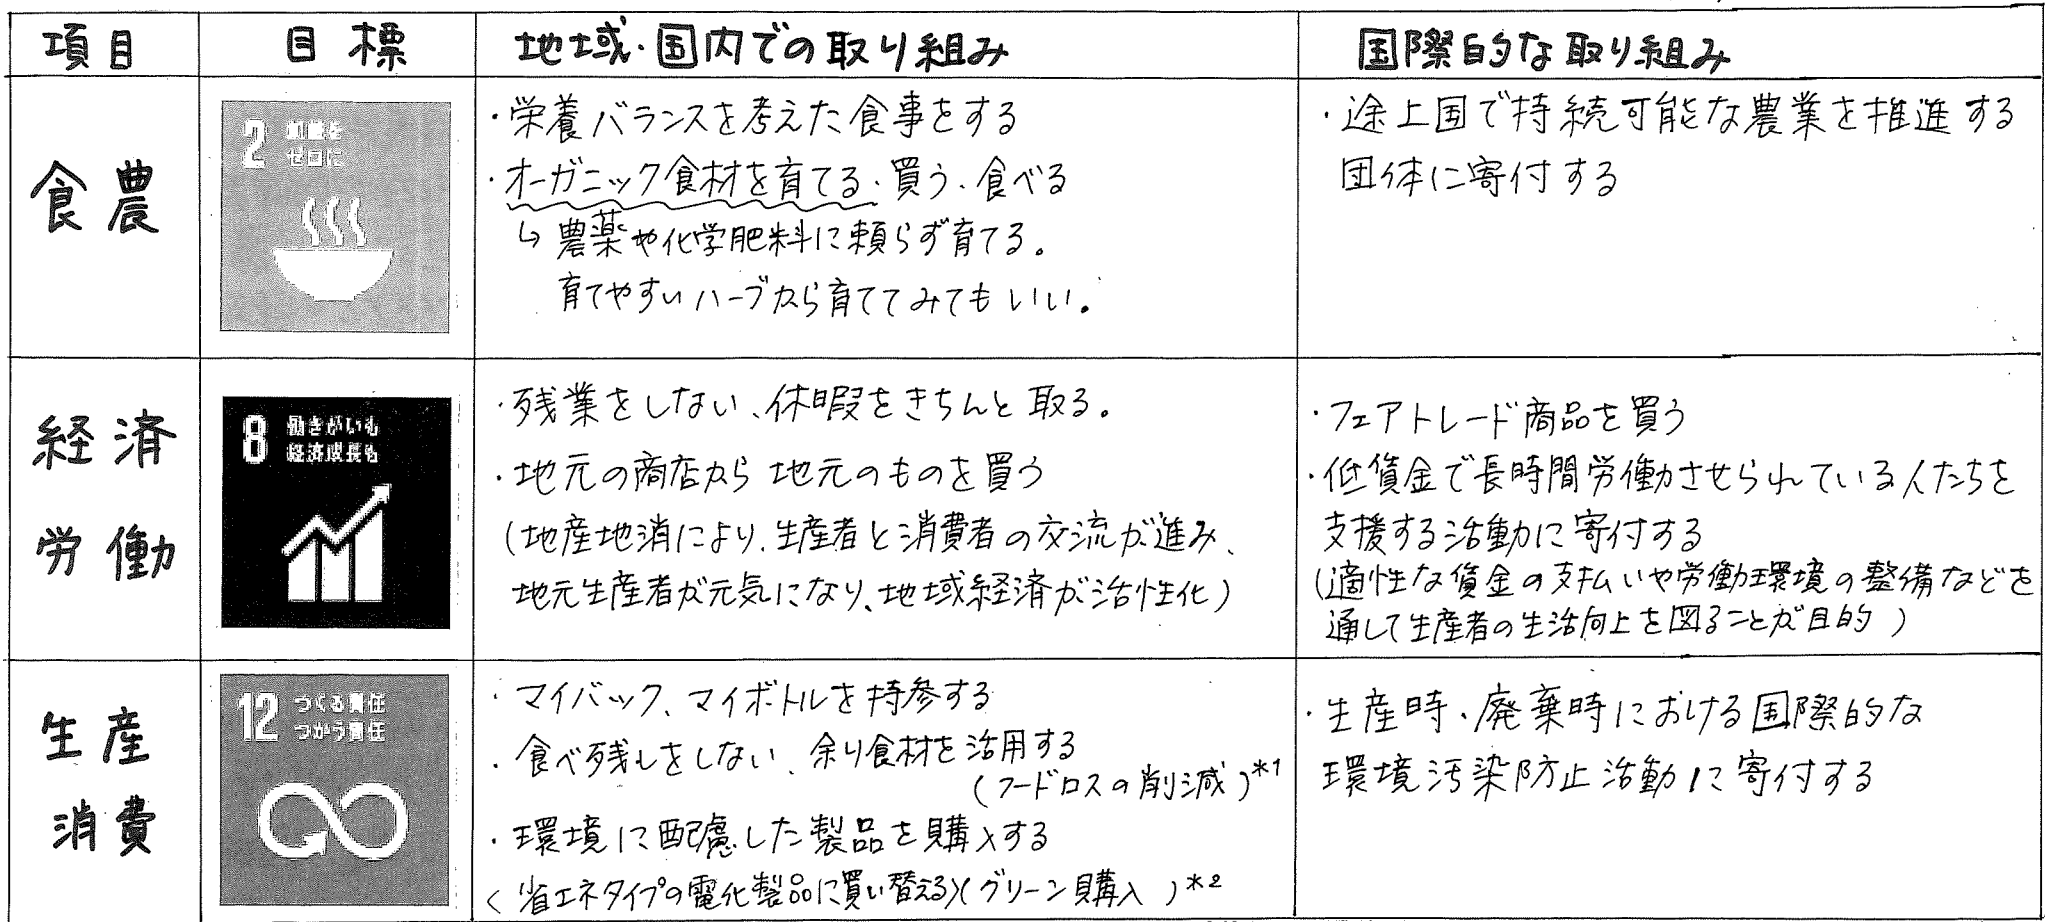 項目 目標 地域・国内での取り組み 国際的な取り組み
食農
2 飢餓を
ゼロに
・栄養バランスを考えた食事をする
・オーガニック食材を育てる、買う、食べる
↳農薬や化学肥料に頼らず育てる。
育てやすいハーブから育ててみてもいい。
・途上国で持続可能な農業を推進する
団体に寄付する
経済
労働
8 働きがいも
経済成長も
・残業をしない、休暇をきちんと取る。
・地元の商店から地元のものを買う
(地産地消により、生産者と消費者の交流が進み、
地元生産者が元気になり、地域経済が活性化)
・フェアトレード商品を買う
・低賃金で長時間労働させられている人たちを
支援する活動に寄付する
(適性な賃金の支払いや労働環境の整備などを
通して生産者の生活向上を図ることが目的)
生産
消費
12 つくる責任
つかう責任
・マイバック、マイボトルを持参する
・食べ残しをしない、余り食材を活用する
(フードロスの削減)*1
・環境に配慮した製品を購入する
<省エネタイプの電化製品に買い替える>(グリーン購入)*2
・生産時、廃棄時における国際的な
環境汚染防止活動に寄付する